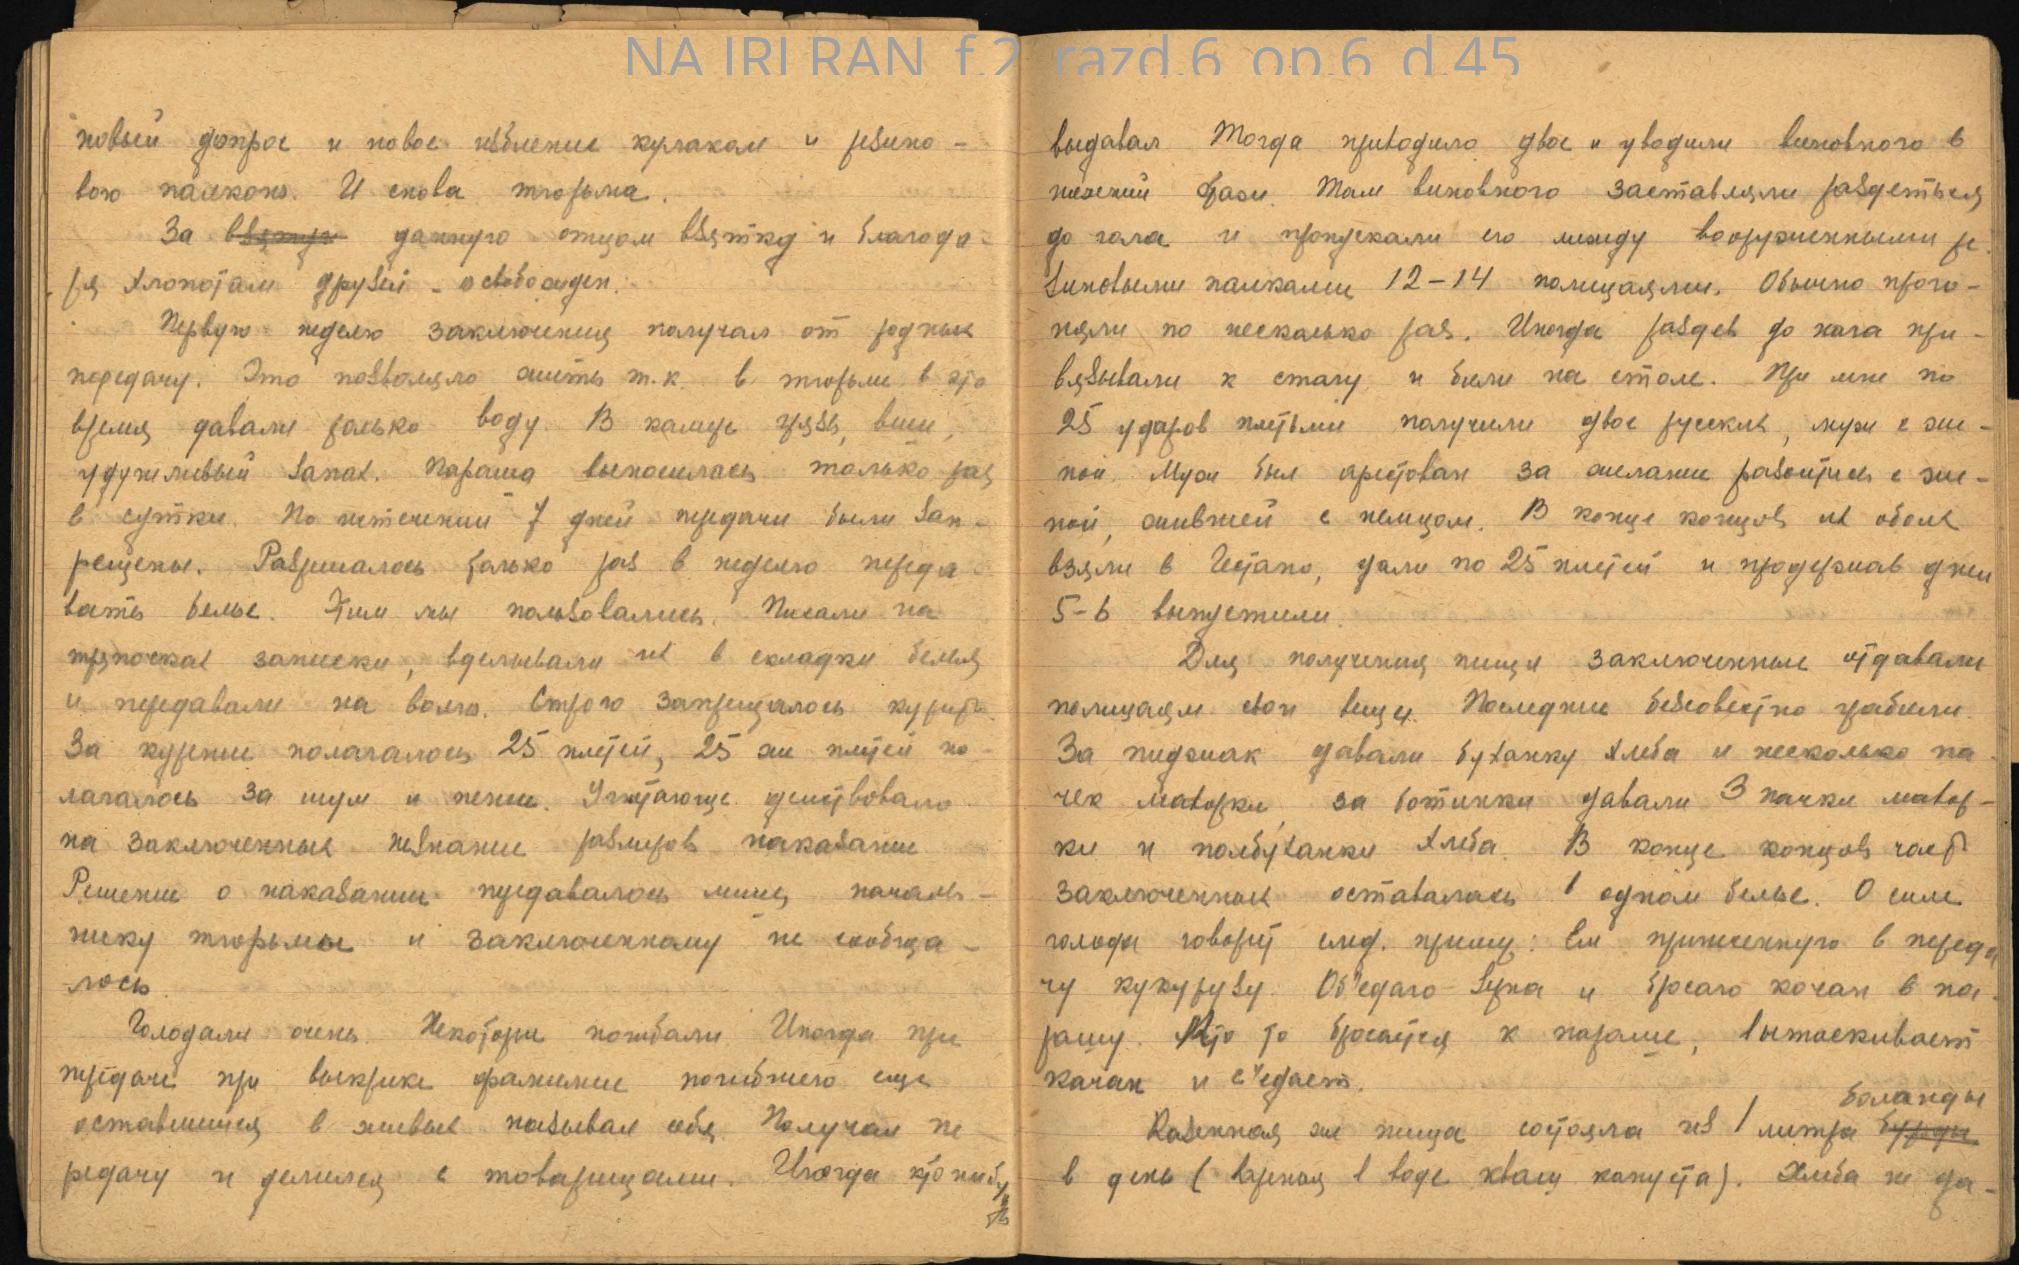 NA IRI RAN f.2 razd.6 op.6 d.45
новый допрос и новое избление кулаком и резино-
вою палкою. И снова тюрьма.
За взятку данную отцом взятку и благода-
ря хлопотам друзей - освобожден.
Первую неделю заключения получал от родных
передачу. Это позволяло жить т.к. в тюрьме в это
время давали только воду. В камере грязь, вши,
удушливый запах. Параша выносилась только раз
в сутки. По истечении 7 дней передачи были зап-
рещены. Разрешалось только раз в неделю переда
вать белье. Этим мы пользовались. Писали на
тряпочках записки, вделывали их в складки белья
и передавали на волю. Строго запрещалось курить.
За курение полагалось 25 плетей, 25 же плетей по-
лагалось за шум и пение. Угнетающе действовало
на заключенных незнание размеров наказание
Решение о наказании предавалось лишь началь-
нику тюрьмы и заключенному не сообща-
лось.
Голодали очень. Некоторые погибали Иногда при
передаче при выкрике фамилие погибшего еще
оставшийся в живых называл себя. Получал пе
редачу и делился с товарищами. Иногда кто нибудь
выдавал Тогда приводило двое и уводили виновного в
нижний этаж. Там виновного заставляли раздеться
до гола и пропускали его между вооруженными ре
зиновыми палками 12-14 полицаями. Обычно прого-
няли по несколько раз. Иногда раздев до нага при-
вязывали к столу и били на столе. При мне по
25 ударов плетьми получили двое русских, муж с же-
ной. Муж был арестован за желание разойтись с же-
ной, жившей с немцом. В конце концов их обоих
взяли в Гестапо, дали по 25 плетей и продержав дней
5-6 выпустили.
Для получения пищи заключенные отдавали
полицаям свои вещи. Последние безсовестно грабили.
За пиджак давали буханку хлеба и несколько па
чек махорки, за ботинки давали 3 пачки махор-
ки и полбуханки хлеба. В конце концов часть
заключенных оставалась в одном белье. О силе
голода говорит след. пример: Ем принесенную в переда
чу кукурузу. Об'едаю зерна и бросаю кочан в па-
рашу. Кто то бросается к параше, вытаскивает
качан и с'едает.
баланды
Казенная же пища состояла из 1 литра бурды
в день (вареная в воде кваш капуста). Хлеба не да-